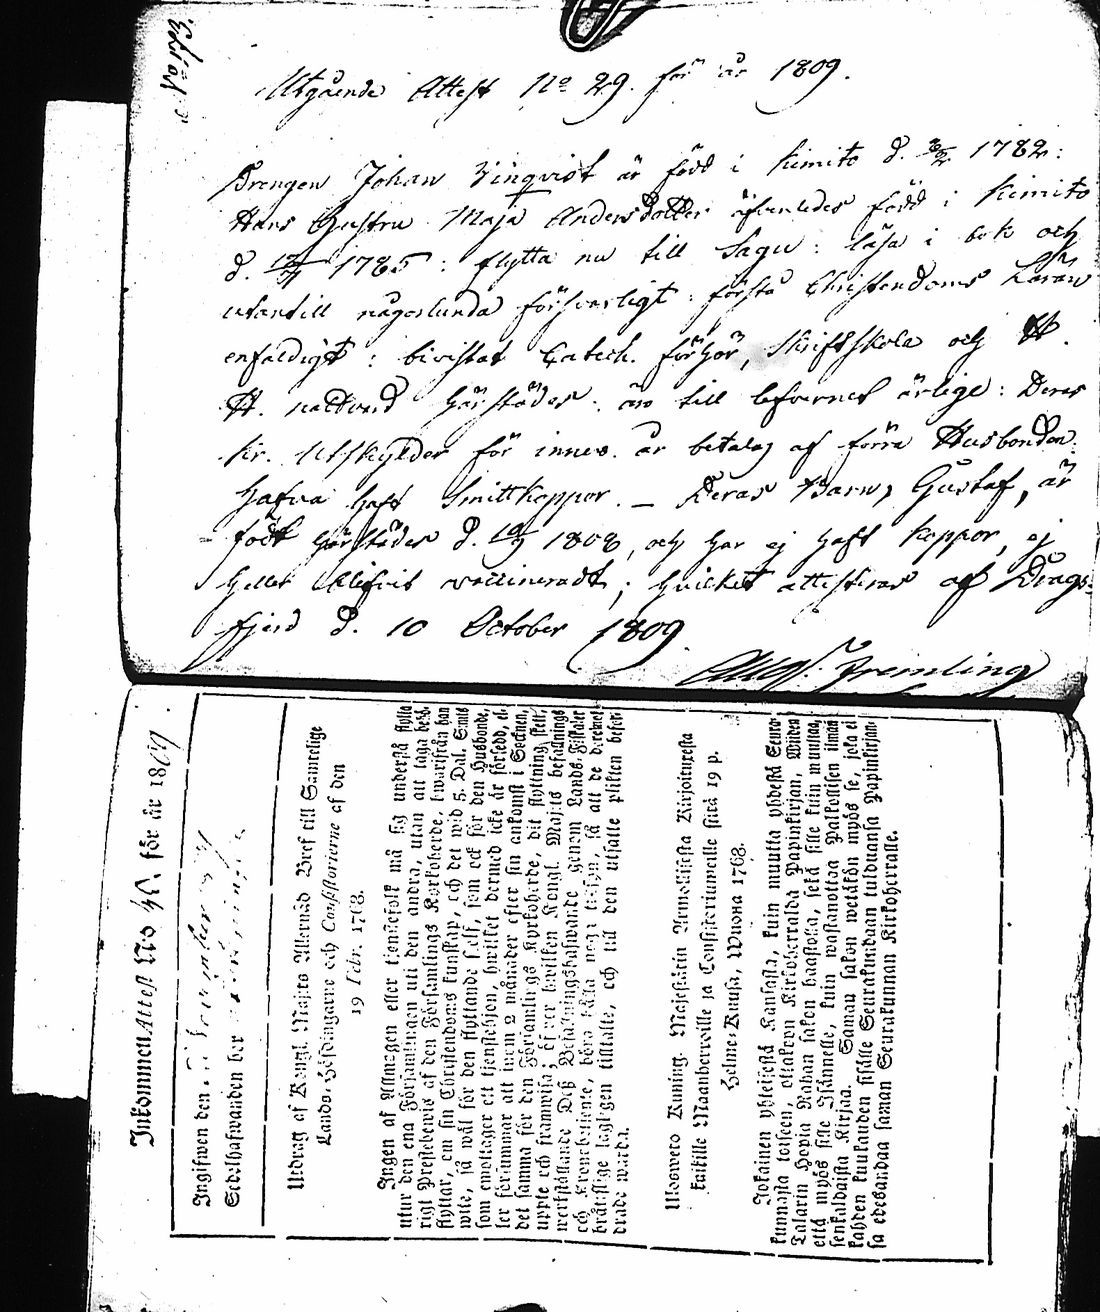 Utgående Attest No 29. för år 1809.
Drengen Johan Linqvist är född i Kimito d. 1782:
Hans Hustru Maja Andersdotter äfvenledes född i Kimito
d. 1785: flytta nu till Sagu: läsa i bok och
utantill någorlunda försvarligt: förstå Christendoms Läran
enfaldigt: bivistat Catech. förhör, Skriftskola och H.
H. nattvard härstädes: äro till lefvernet ärlige: Deras
Kr. Utskylder för innev. år betalas af förra Husbonden:
hafva haft Smittkoppor. — Deras Barn, Gustaf, är
född härstädes d. 1808, och har ej haft koppor, ej
heller blifvit vaccineradt; hvilket attesteras af Drags-
fjerd d. 10 October 1809.
Fremling
Inkommen Attest No för år 1809
Ingifwen den
Sedelhafwanden bor
Utdrag af Kongl. Maj:ts Allernåd. Bref till Samtelige
Lands-Höfdingarne och Consistorierne af den
19 Febr. 1768.
Ingen af Allmogen eller tjenstefolk må sig understå flytta
utur den ena Församlingen uti den andra, utan att taga behö-
rigt Prestebewis af den Församlings Kyrkoherde, hwarifrån han
flyttar, om sin Christendoms kunskap, och det wid 5. Dal. Smts
wite, så wäl för den flyttande sjelf, som ock för den Husbonde,
som emottager ett tjenstehjon, hwilket dermed icke är försedd, el-
ler försummar att inom 2 månader efter sin ankomst i Socknen,
det samma för den Församlings Kyrkoherde, dit flyttning skett,
uppte och framwisa; öfwer hwilken Kongl. Maj:ts befallnings
werkställande Dess Befallningshafwande genom Lands-Fiskaler
och Kronobetjente, böra hålla noga tillsyn, så att de deremot
brottslige lagligen tilltalte, och till den utsatte plikten befor-
drade warda.
Ulosweto Kuning. Majestätin Armollisesta Kirjoituresta
kaikille Maanherroille ja Consistoriumeille siitä 19 p.
Helme-Kuusa, Wuonna 1768.
Jokainen yhteisestä Kansasta, kuin muutta yhdestä Seura-
kunnasta toiseen, ottakoon Kirkoherralda Papinkirjan, Wiiden
Talarin Hopia Rahan sakon haastolla, sekä sille kuin muuttaa,
että myös sille Isännelle, kuin wastanottaa Palkollisen ilman
senkaldaista Kirjaa. Saman sakon wetäköön myös se, joka ei
kahden kuukauden sisälle Seurakundaan tulduansa Papinkirjan-
sa edesandaa saman Seurakunnan Kirkoherralle.